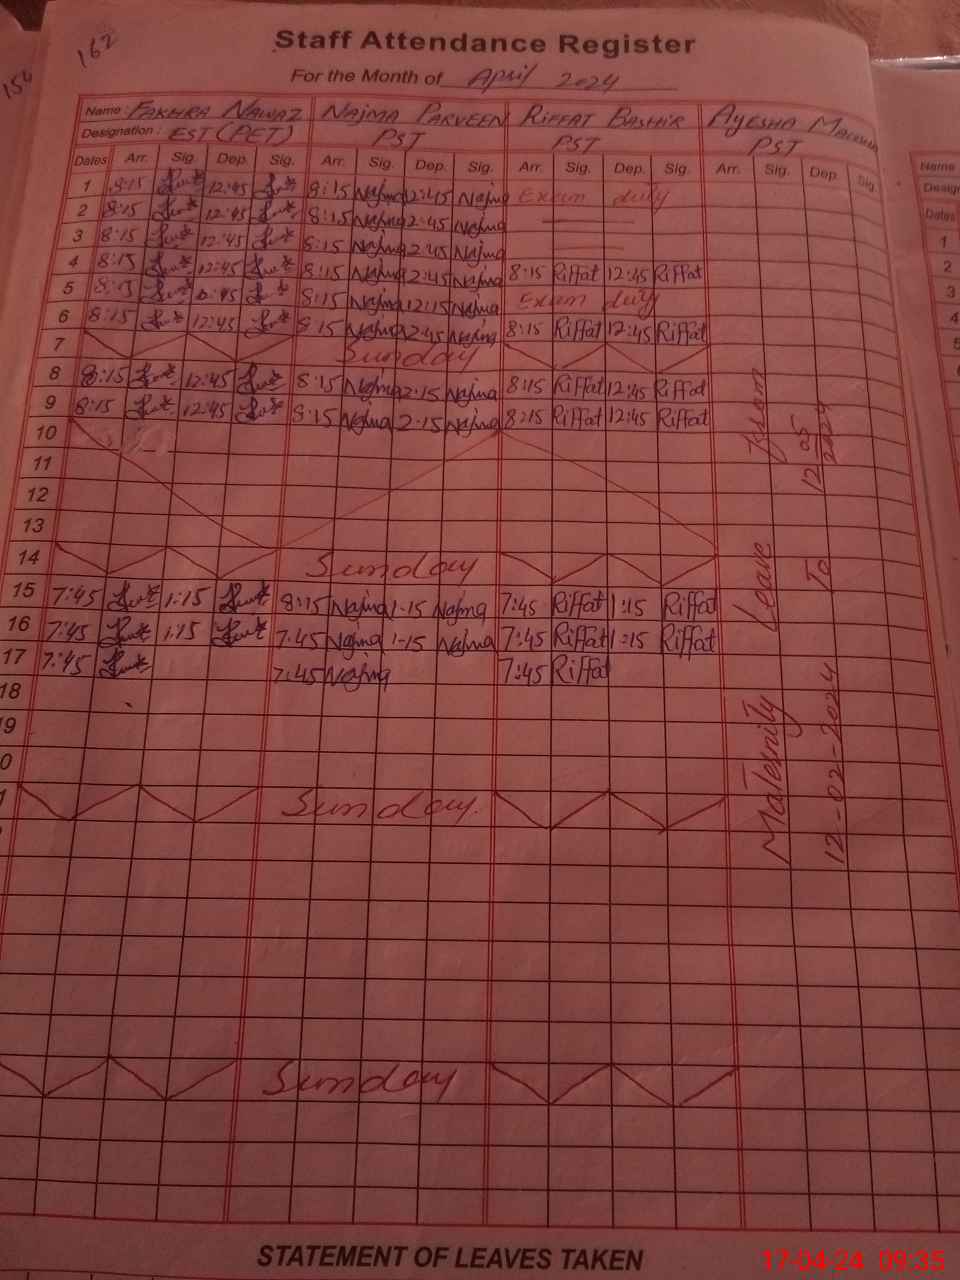 162
154
Staff Attendance Register
For the Month of April 2024
Name: FAKHRA NAWAZ NAJMA PARVEEN RIFFAT BASHIR AYESHA
Designation: EST (PET) PST PST PST
Dates Arr. Sig. Dep. Sig. Arr. Sig. Dep. Sig. Arr. Sig. Dep. Sig. Arr. Sig. Dep. Sig.
1 8:15 12:45 8:15 Najma 12:45 Najma Exam duty
2 8:15 12:45 8:15 Najma 2:45 Najma
3 8:15 12:45 8:15 Najma 2:45 Najma
4 8:15 12:45 8:15 Najma 2:45 Najma 8:15 Riffat 12:45 Riffat
5 8:15 12:45 8:15 Najma 12:15 Najma Exam duty
6 8:15 12:45 8:15 Najma 2:45 Najma 8:15 Riffat 12:45 Riffat
7 Sunday
8 8:15 12:45 8:15 Najma 2:15 Najma 8:15 Riffat 12:45 Riffat
9 8:15 12:45 8:15 Najma 2:15 Najma 8:15 Riffat 12:45 Riffat
10
11
12
13
14 Sunday
15 7:45 1:15 8:15 Najma 1-15 Najma 7:45 Riffat 1:15 Riffat
16 7:45 1:15 7:45 Najma 1-15 Najma 7:45 Riffat 1:15 Riffat
17 7:45 7:45 Najma 7:45 Riffat
18
9
0
1 Sunday
Sunday
Maternity Leave From
12-02-2024 To 12 05 2024
STATEMENT OF LEAVES TAKEN
Name
Desig
Dates
1
2
3
4
5
17-04-24 09:35